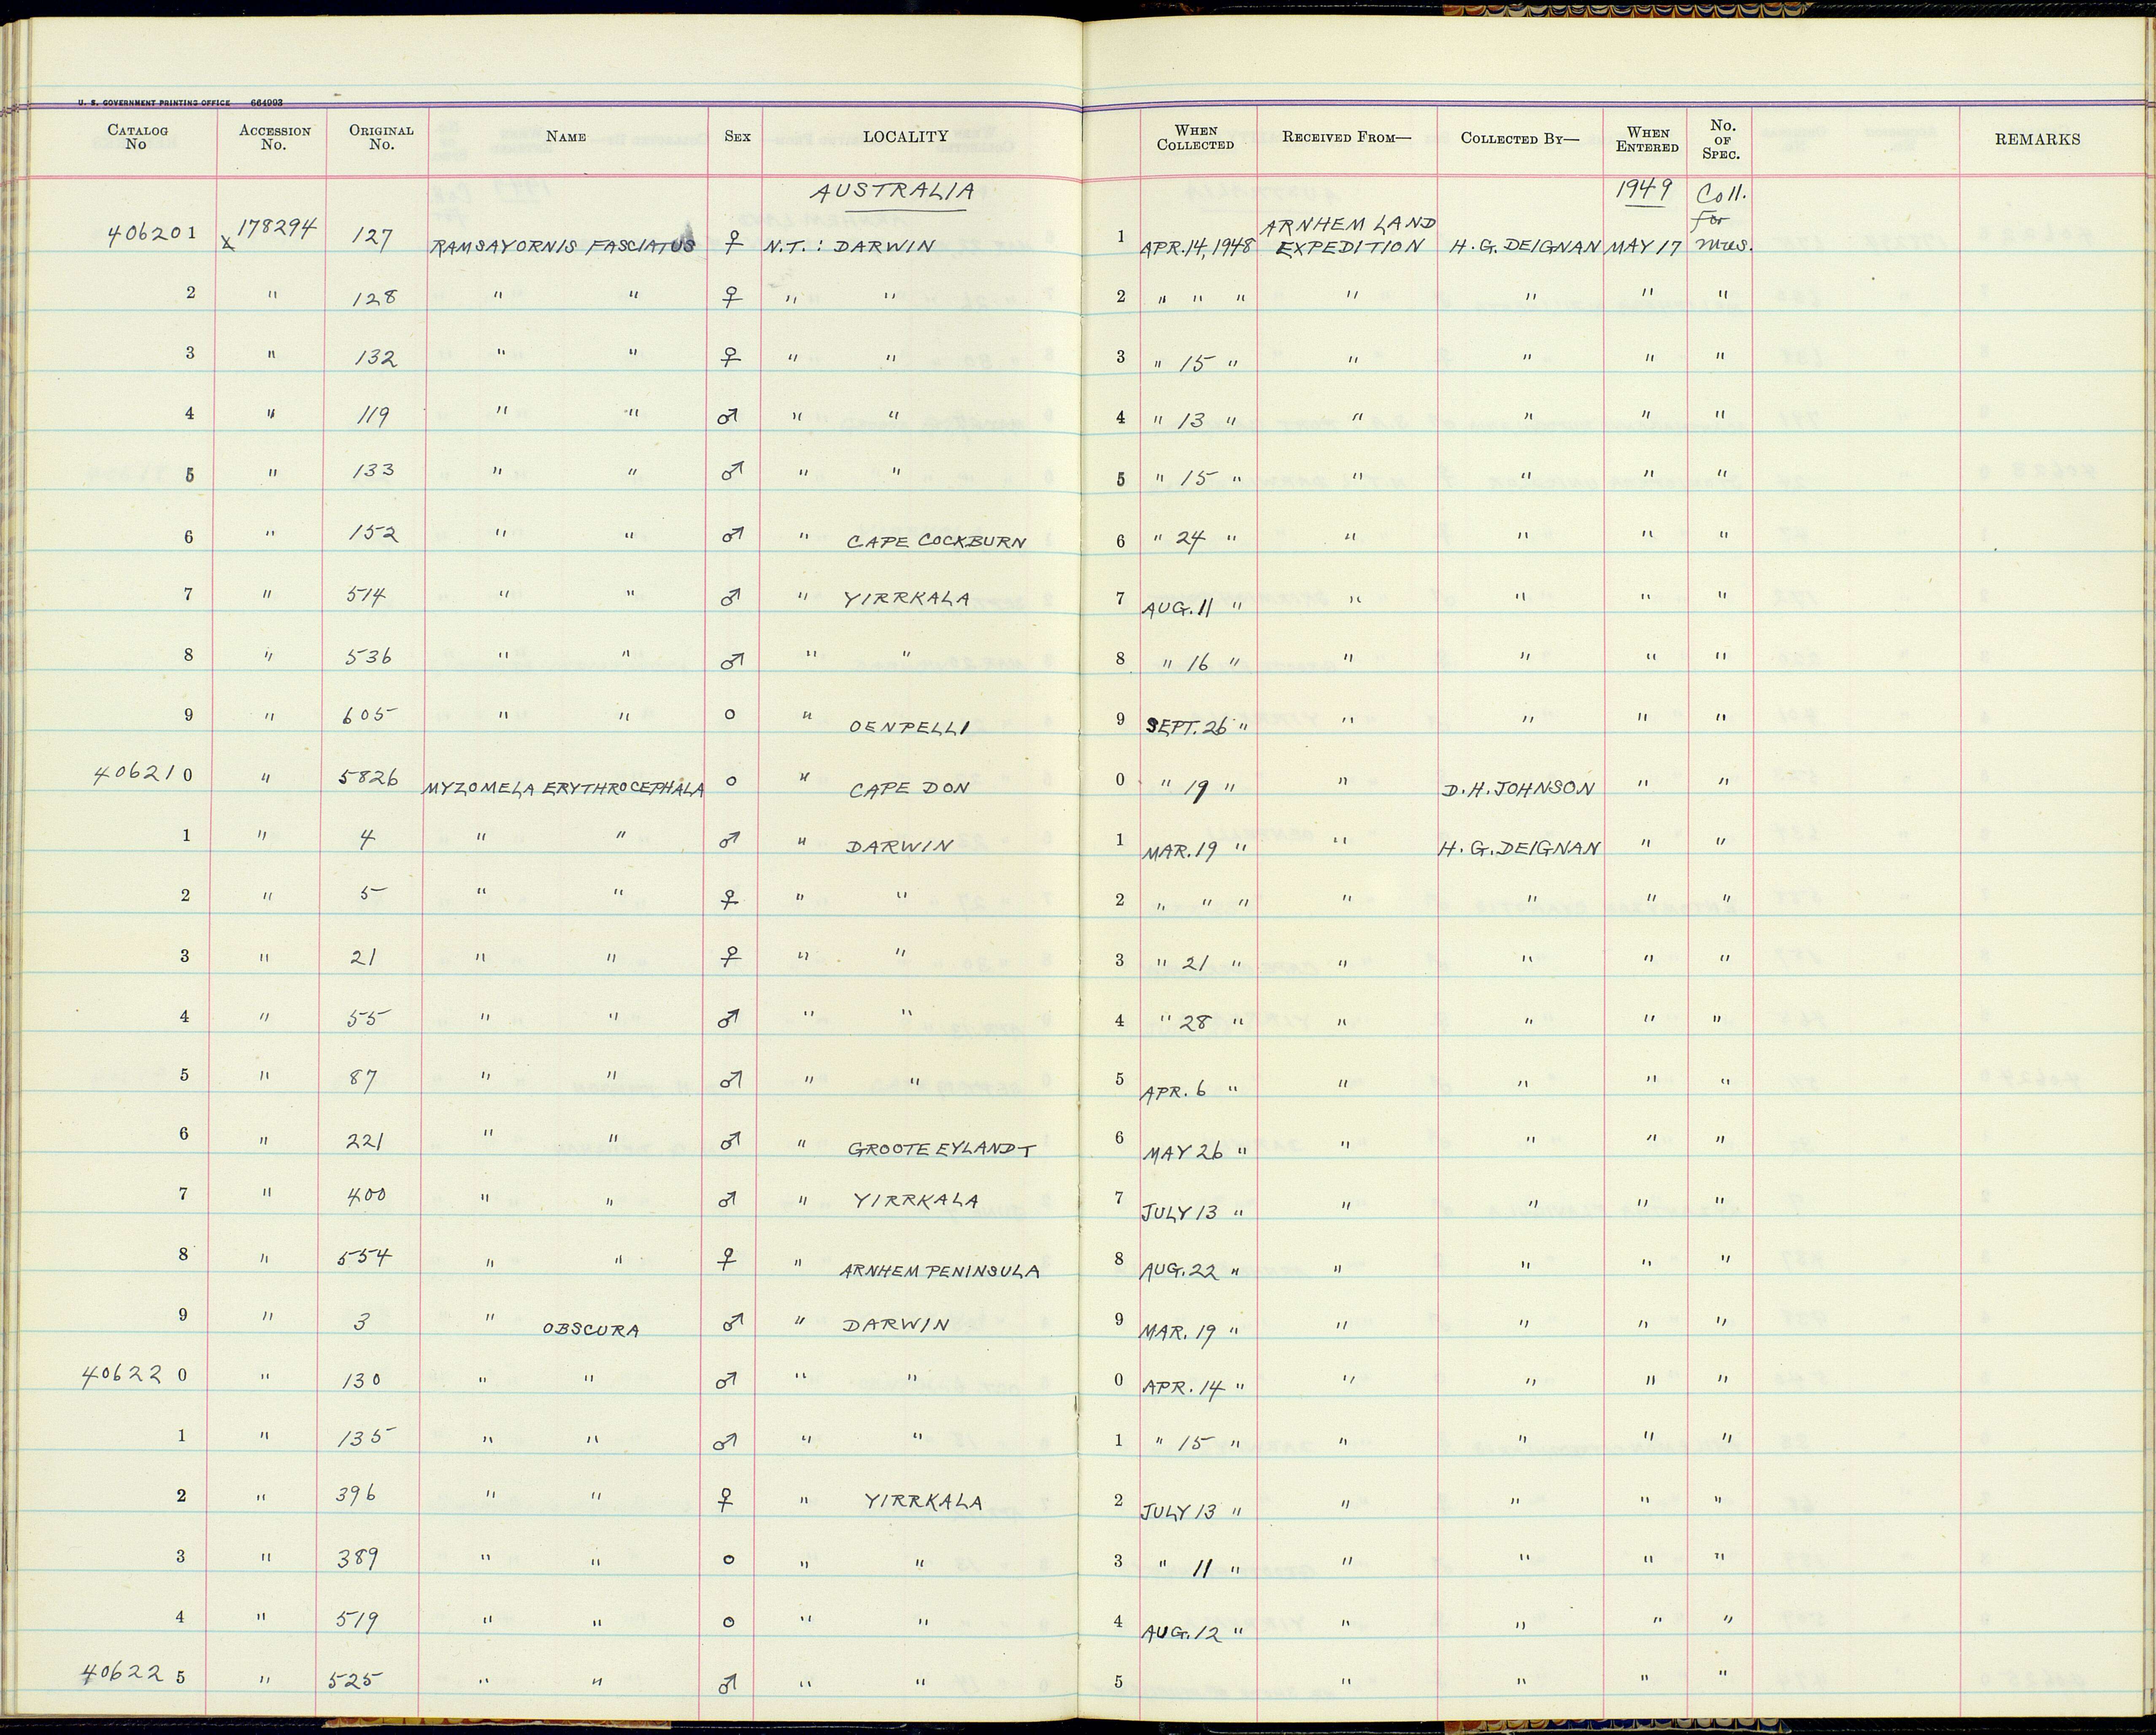 U. S. GOVERNMENT PRINTING OFFICE 664993
CATALOG No ACCESSION No. ORIGINAL No. NAME SEX LOCALITY WHEN COLLECTED RECEIVED FROM— COLLECTED BY— WHEN ENTERED No. OF SPEC. REMARKS
AUSTRALIA 1949 Coll. for mus.
406201 x 178294 127 RAMSAYORNIS FASCIATUS ♀ N.T.: DARWIN 1 APR. 14, 1948 ARNHEM LAND EXPEDITION H. G. DEIGNAN MAY 17
2 " 128 " " ♀ " " 2 " " " " " " "
3 " 132 " " ♀ " " 3 " 15 " " " " "
4 " 119 " " ♂ " " 4 " 13 " " " " "
5 " 133 " " ♂ " " 5 " 15 " " " " "
6 " 152 " " ♂ " CAPE COCKBURN 6 " 24 " " " " "
7 " 514 " " ♂ " YIRRKALA 7 AUG. 11 " " " " "
8 " 536 " " ♂ " " 8 " 16 " " " " "
9 " 605 " " o " OENPELLI 9 SEPT. 26 " " " " "
406210 " 5826 MYZOMELA ERYTHROCEPHALA o " CAPE DON 0 " 19 " " D. H. JOHNSON " "
1 " 4 " " ♂ " DARWIN 1 MAR. 19 " " H. G. DEIGNAN " "
2 " 5 " " ♀ " " 2 " " " " " " "
3 " 21 " " ♀ " " 3 " 21 " " " " "
4 " 55 " " ♂ " " 4 " 28 " " " " "
5 " 87 " " ♂ " " 5 APR. 6 " " " " "
6 " 221 " " ♂ " GROOTE EYLANDT 6 MAY 26 " " " " "
7 " 400 " " ♂ " YIRRKALA 7 JULY 13 " " " " "
8 " 554 " " ♀ " ARNHEM PENINSULA 8 AUG. 22 " " " " "
9 " 3 " OBSCURA ♂ " DARWIN 9 MAR. 19 " " " " "
406220 " 130 " " ♂ " " 0 APR. 14 " " " " "
1 " 135 " " ♂ " " 1 " 15 " " " " "
2 " 396 " " ♀ " YIRRKALA 2 JULY 13 " " " " "
3 " 389 " " o " " 3 " 11 " " " " "
4 " 519 " " o " " 4 AUG. 12 " " " " "
406225 " 525 " " ♂ " " 5 " " " "